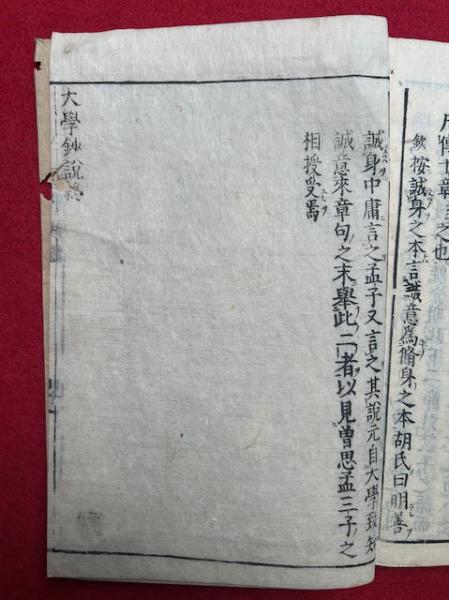 凡傳十章至之也
欽按誠身之本言誠意爲脩身之本胡氏曰明善
誠身中庸言之孟子又言之其說元自大學致知
誠意來章句之末舉此二者以見曾思孟三子之
相授受焉
大學鈔說終